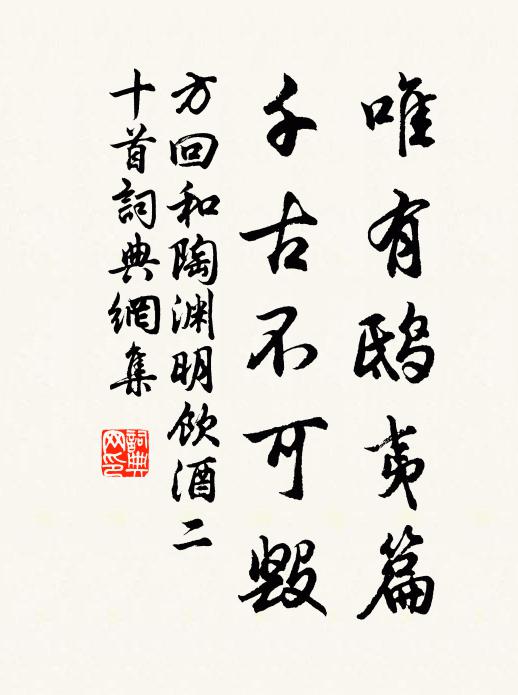 唯有鴟夷篇
千古不可毀
方回和陶淵明飲酒二
十首詞典網集
詞典
网印